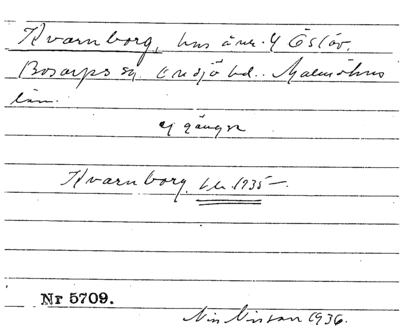 Kvarnborg, hus å nr. 4 Öslöv,
Bosarps sn. Onsjö hd.. Malmöhus
län.
ej gängse
Kvarnborg. tlr. 1935 —
Nr 5709.
Nils Nilsson 1936.